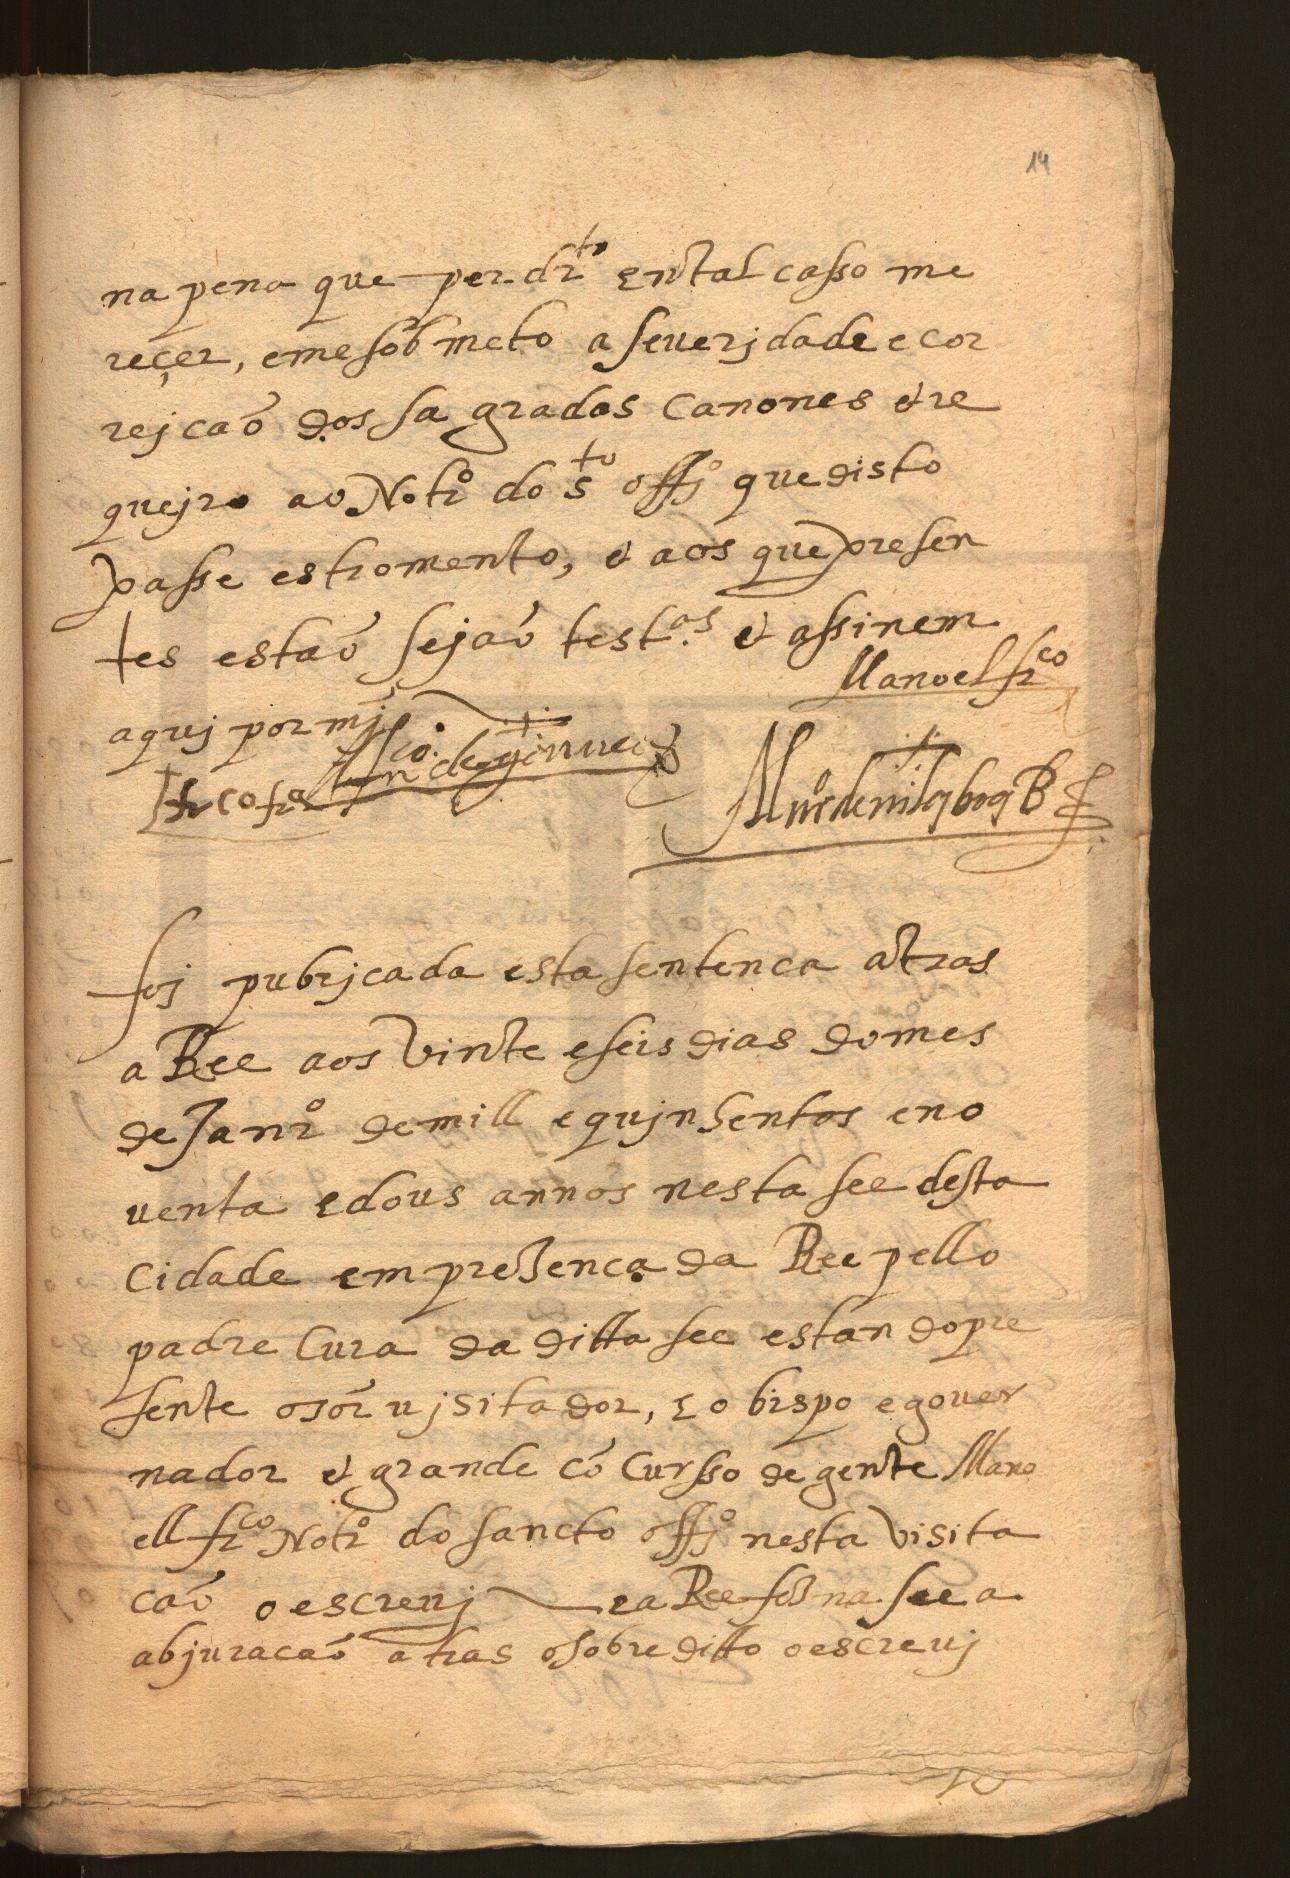 14
na pena que per dr.to em tal casso me
reçer, e me sob meto a seueridade e cor
reiçaõ dos sagrados canones e re
queiro ao Notr.o do s.to offi.o que disto
passe estromento, e aos que presen
tes estaõ sejaõ test.as e assinem
aqui por mj
Manoel fr.co
foj pubricada esta sentenca atras
a Ree aos vinte e seis dias do mes
de Janr.o de mill e quinhentos e no
uenta e dous annos nesta see desta
cidade em presenca da Ree pello
padre Cura da ditta see estando pre
sente o sõr uisitador, e o bispo e gouer
nador e grande cõ curso de gente Mano
ell fr.co Notr.o do sancto offi.o nesta visita
caõ o escreuj e a Ree fes na see a
abjuracaõ atras o sobreditto o escreuj